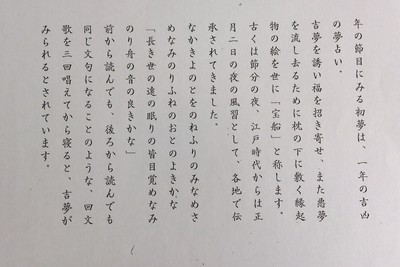 年の節目にみる初夢は、一年の吉凶
の夢占い。
吉夢を誘い福を招き寄せ、また悪夢
を流し去るために枕の下に敷く縁起
物の絵を世に「宝船」と称します。
古くは節分の夜、江戸時代からは正
月二日の夜の風習として、各地で伝
承されてきました。
なかきよのとをのねふりのみなめさ
めなみのりふねのおとのよきかな
「長き世の遠の眠りの皆目覚めなみ
のり舟の音の良きかな」
前から読んでも、後ろから読んでも
同じ文句になることのような、回文
歌を三回唱えてから寝ると、吉夢が
みられるとされています。